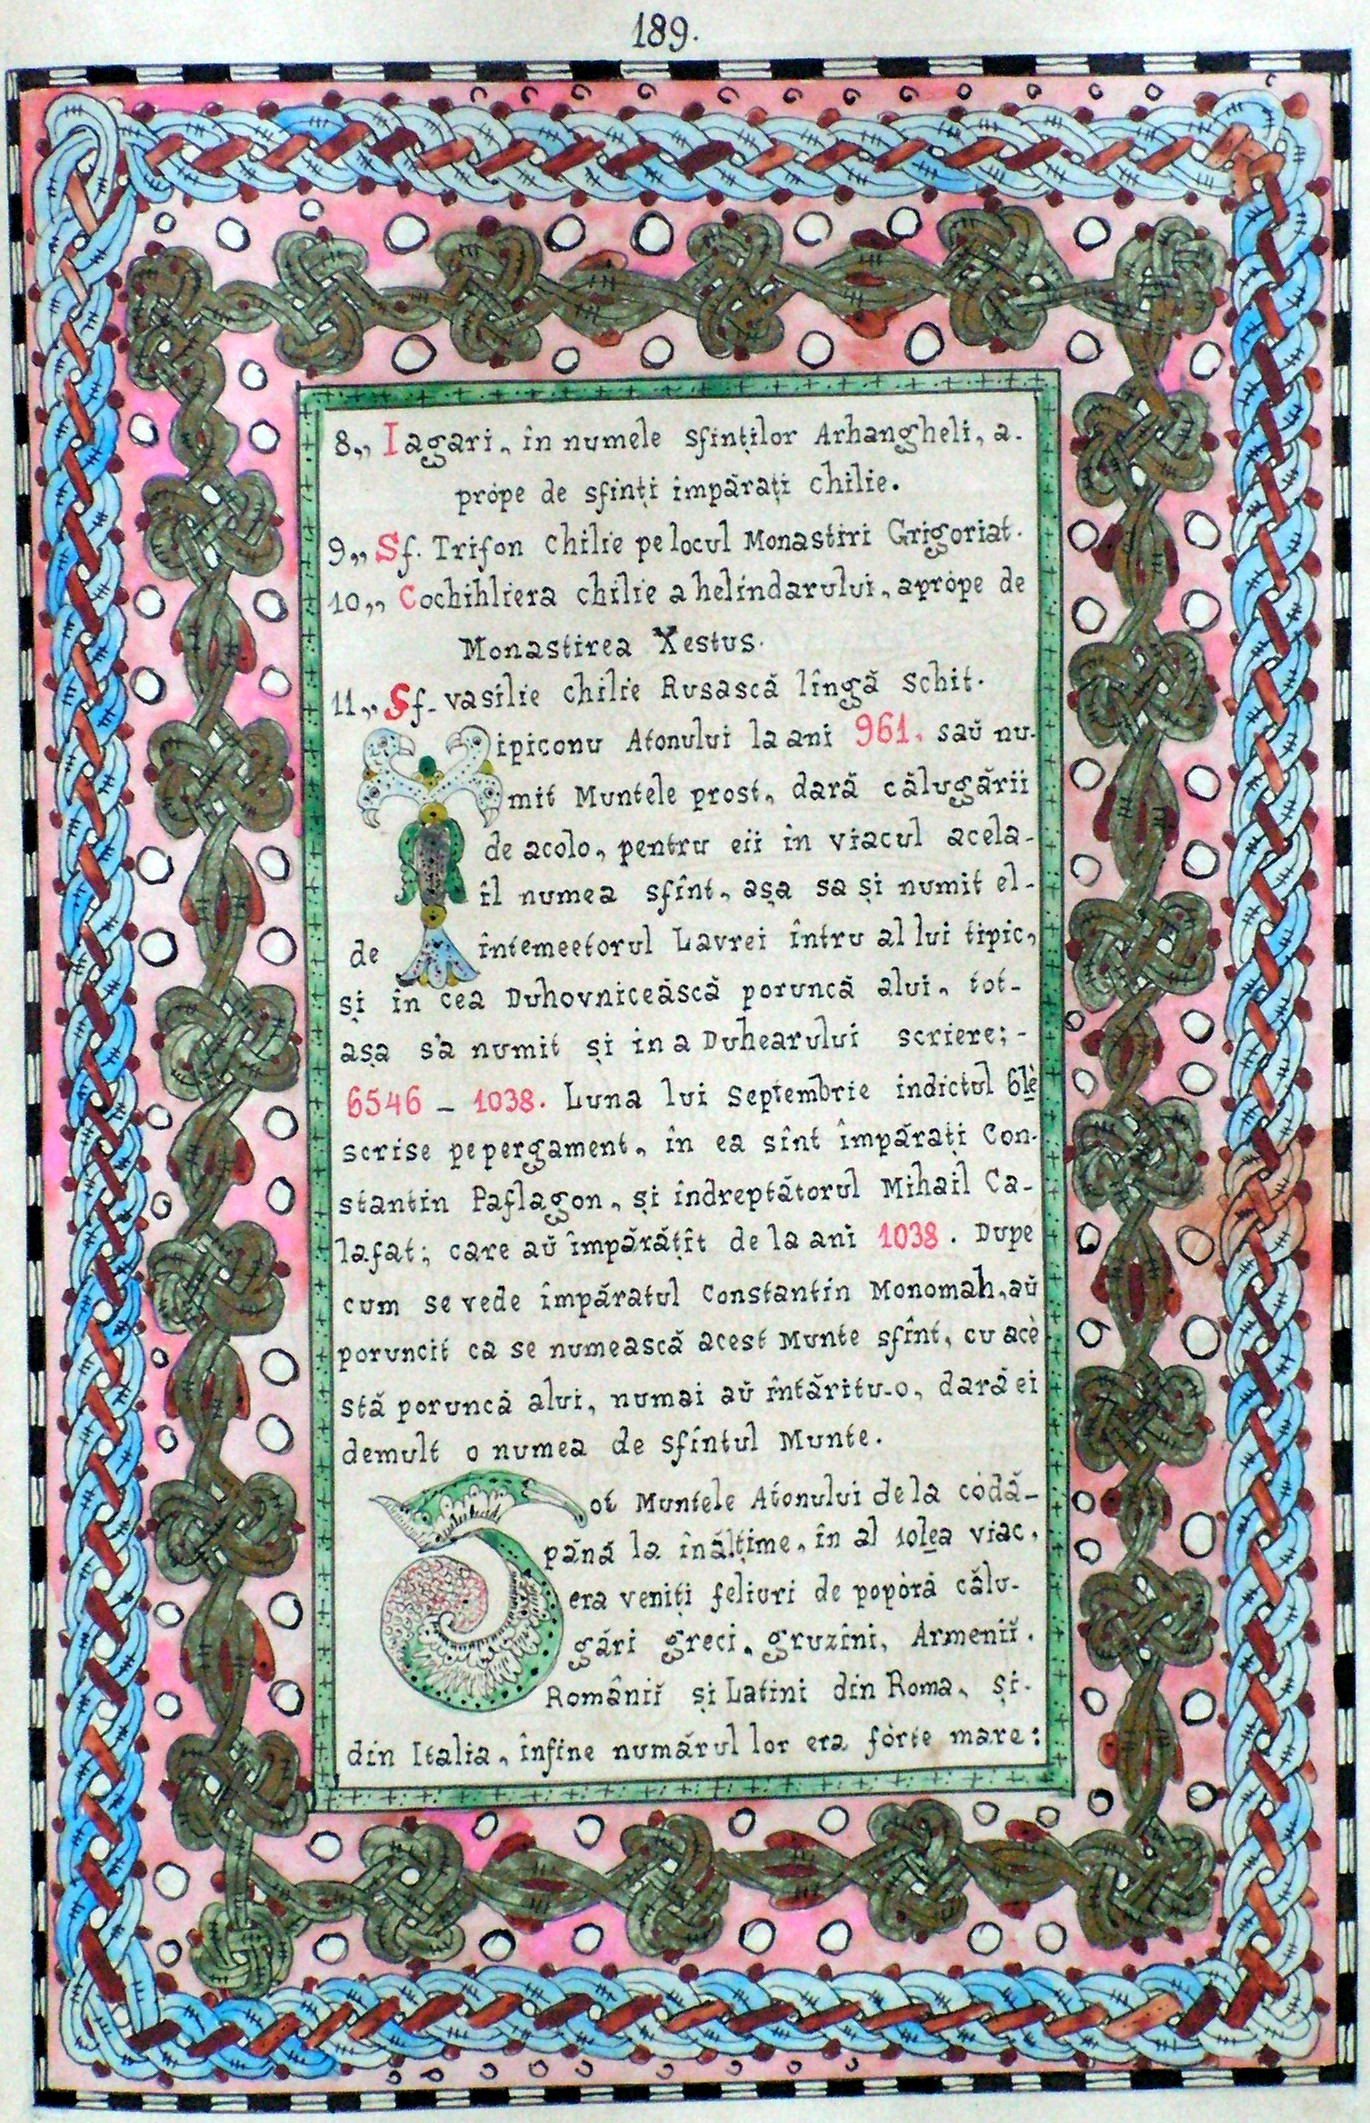 189.
8,, Iagari, în numele sfinților Arhangheli, a-
prope de sfinți împărați chilie.
9,, Sf. Trifon chilie pe locul Monastiri Grigoriat.
10,, Cochihliera chilie a helindarului, aprópe de
Monastirea Xestus.
11,, Sf. vasilie chilie Rusască lîngă Schit.
Tipiconu Atonului la ani 961, saŭ nu-
mit Muntele prost, dară călugării
de acolo, pentru eii în viacul acela-
îl numea sfînt, așa sa și numit el-
de întemeetorul Lavrei întru al lui tipic,
și în cea Duhovnicească poruncă alui, tot-
așa s'a numit și in a Duhearului scriere; -
6546 - 1038. Luna lui Septembrie indictul 6lè
scrise pe pergament, în ea sînt împărați Con-
stantin Paflagon, și îndreptătorul Mihail Ca-
lafat; care aŭ împărățît de la ani 1038. Dupe
cum se vede împăratul Constantin Monomah, aŭ
poruncit ca se numească acest Munte sfînt, cu acè
stă poruncă alui, numai aŭ întăritu-o, dară ei
demult o numea de sfîntul Munte.
Tot Muntele Atonului de la códă-
pănă la înălțime, în al 10lea viac,
era veniți feliuri de popóră călu-
gări greci, gruzini, Armenii,
Românii și Latini din Roma, și-
din Italia, înfine numărul lor era fórte mare: